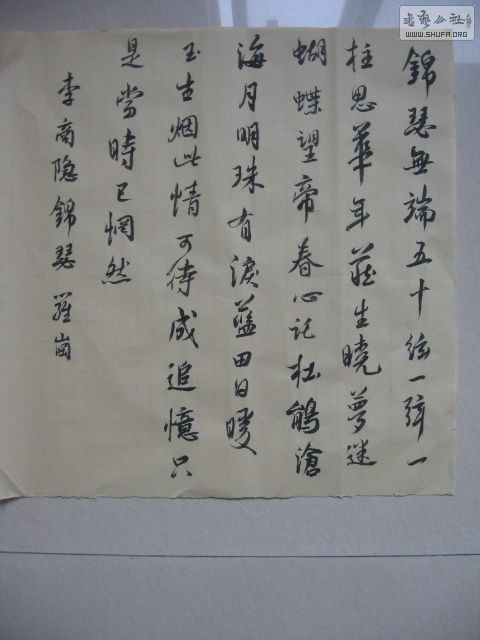 書藝公社
WWW.SHUFA.ORG
錦瑟無端五十弦一弦一
柱思華年莊生曉夢迷
蝴蝶望帝春心託杜鵑滄
海月明珠有淚藍田日暖
玉生烟此情可待成追憶只
是當時已惘然
李商隐錦瑟 羅崗